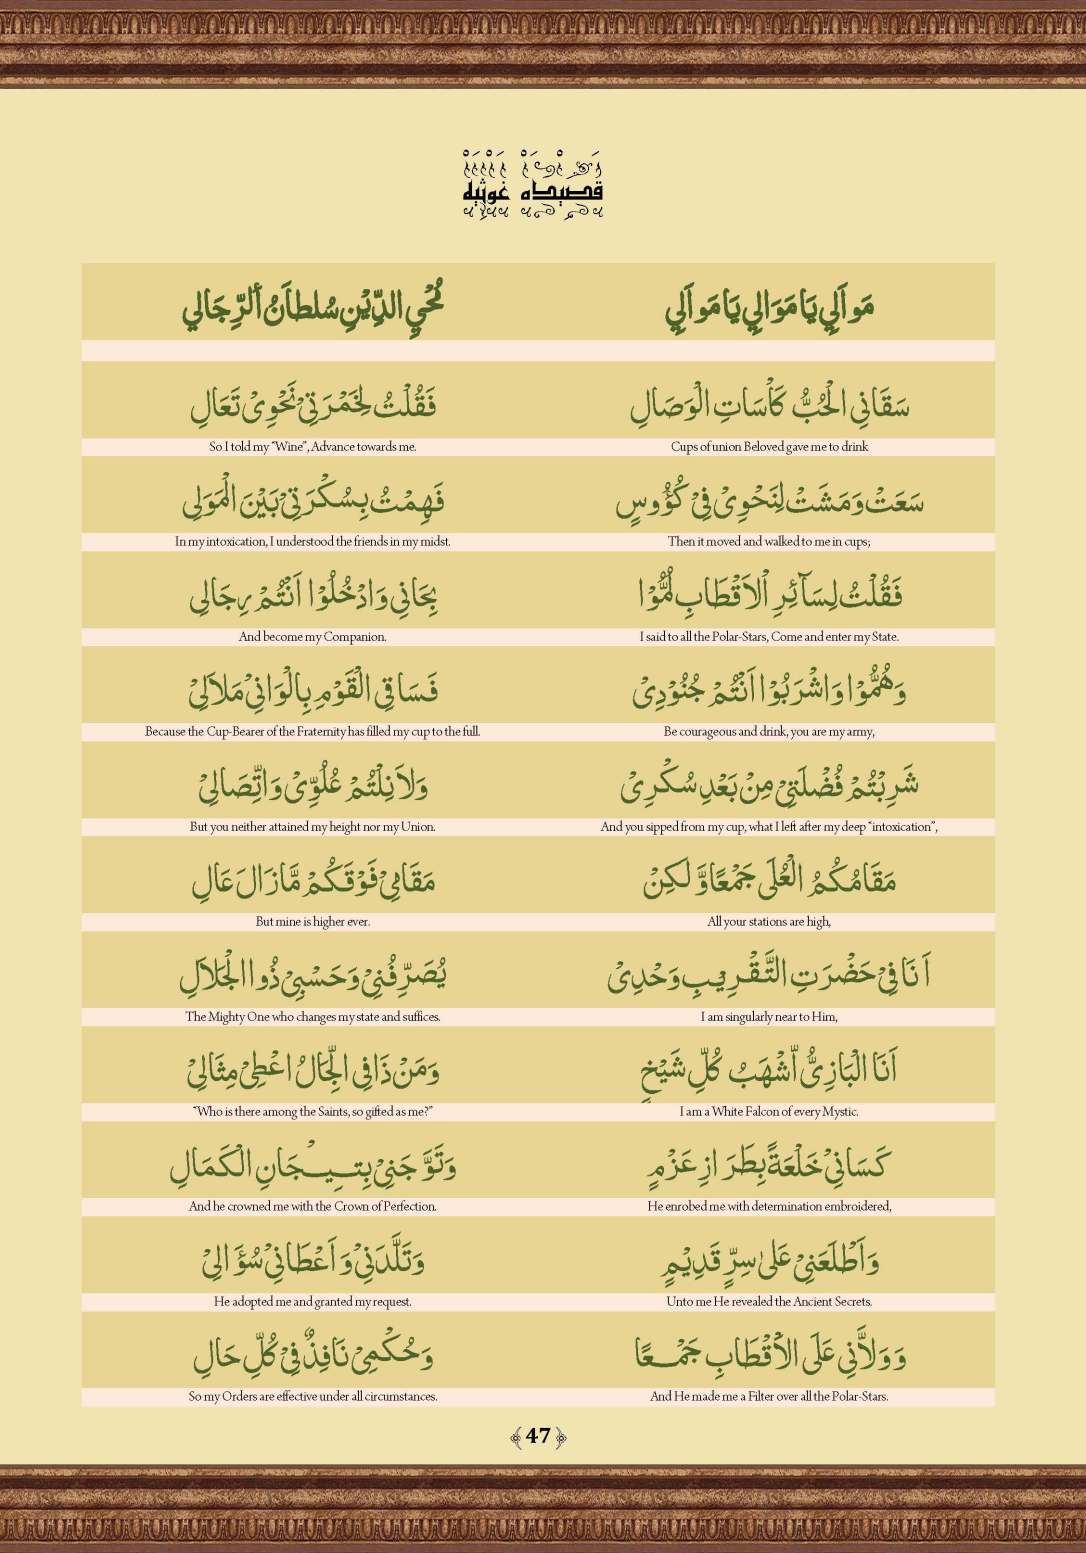 قصیدہ غوثیہ
مَوالِي يَا مَوَالِي يَا مَوالِي
مُحْيِ الدِّيْنِ سُلطانُ ألرِّجَالي
سَقَانِي الْحُبُّ كَأْسَاتِ الْوَصَالِ
فَقُلْتُ لِخَمْرَتِيْ نَحْوِىْ تَعَالِ
Cups of union Beloved gave me to drink
So I told my “Wine”, Advance towards me.
سَعَتْ وَمَشَتْ لِنَحْوِىْ فِيْ كُؤُوسٍ
فَهِمْتُ بِسُكْرَتِيْ بَيْنَ الْمَوَلِى
Then it moved and walked to me in cups;
In my intoxication, I understood the friends in my midst.
فَقُلْتُ لِسَآئِرِ اْلاَقْطَابِ لُمُّوْا
بِحَانِي وَادْخُلُوْا اَنْتُمْ رِجَالِى
I said to all the Polar-Stars, Come and enter my State.
And become my Companion.
وَهُمُّوْا وَاشْرَبُوْا اَنْتُمْ جُنُوْدِىْ
فَسَاقِي الْقَوْمِ بِالْوَانِيْ مَلاَلِيْ
Be courageous and drink, you are my army,
Because the Cup-Bearer of the Fraternity has filled my cup to the full.
شَرِبْتُمْ فُضْلَتِيْ مِنْ بَعْدِ سُكْرِىْ
وَلاَ نِلْتُمْ عُلُوِّىْ وَاتِّصَالِيْ
And you sipped from my cup, what I left after my deep “intoxication”,
But you neither attained my height nor my Union.
مَقَامُكُمُ الْعُلَى جَمْعًا وَّلَكِنْ
مَقَامِيْ فَوْقَكُمْ مَّازَالَ عَالِ
All your stations are high,
But mine is higher ever.
اَنَا فِيْ حَضْرَتِ التَّقْرِيْبِ وَحْدِىْ
يُصَرِّفُنِيْ وَحَسْبِيْ ذُوا الْجَلاَلِ
I am singularly near to Him,
The Mighty One who changes my state and suffices.
اَنَا الْبَازِىُّ اَشْهَبُ كُلِّ شَيْخٍ
وَمَنْ ذَا فِي الرِّجَالُ اعْطِيْ مِثَالِيْ
I am a White Falcon of every Mystic.
“Who is there among the Saints, so gifted as me?”
كَسَانِيْ خَلْعَةً بِطَرَازِ عَزْمٍ
وَتَوَّجَنِيْ بِتِيْجَانِ الْكَمَالِ
He enrobed me with determination embroidered,
And he crowned me with the Crown of Perfection.
وَاَطْلَعَنِيْ عَلىٰ سِرٍّ قَدِيْمٍ
وَتَلَّدَنِيْ وَاَعْطَانِيْ سُؤَالِيْ
Unto me He revealed the Ancient Secrets.
He adopted me and granted my request.
وَوَلاَّنِي عَلَى الْأَقْطَابِ جَمْعًا
وَحُكْمِيْ نَافِذٌ فِيْ كُلِّ حَالِ
And He made me a Filter over all the Polar-Stars.
So my Orders are effective under all circumstances.
47